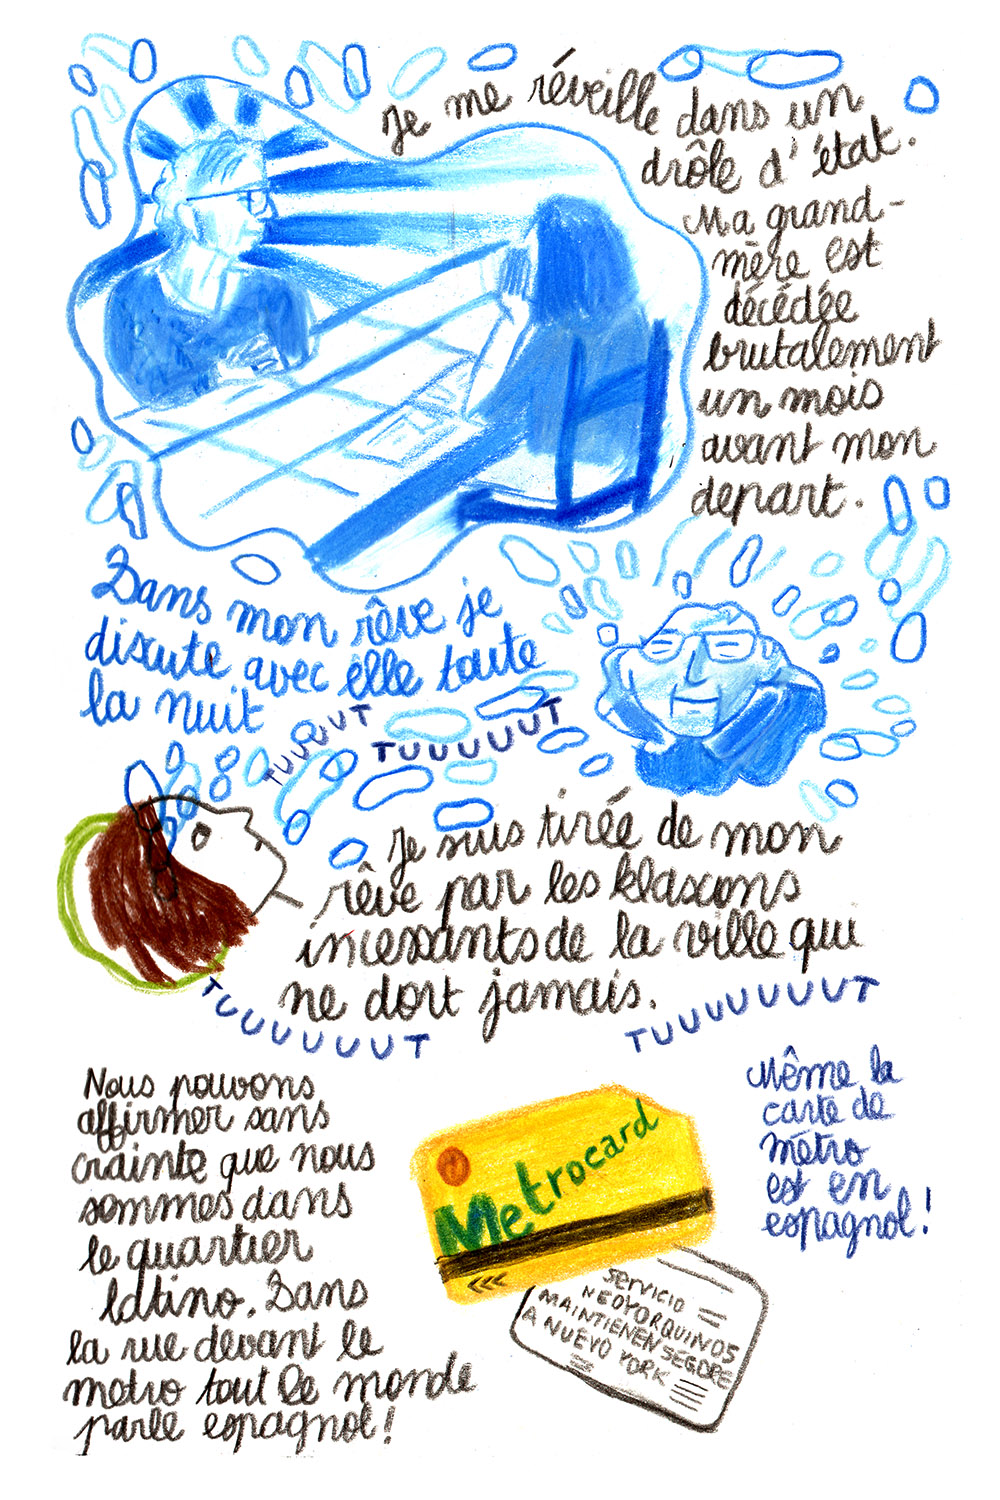 Je me réveille dans un
drôle d'état.
Ma grand-
mère est
décédée
brutalement
un mois
avant mon
depart.
Dans mon rêve je
discute avec elle toute
la nuit
TUUUUUT
TUUUUUUT
Je suis tirée de mon
rêve par les klaxons
incessants de la ville qui
ne dort jamais.
TUUUUUUUT
TUUUUUUUUT
Nous pouvons
affirmer sans
crainte que nous
sommes dans
le quartier
latino. Dans
la rue devant le
metro tout le monde
parle espagnol!
Metrocard
SERVICIO
NEOYORQUINOS
MAINTIENEN SEGORE
A NUEVO YORK
Même la
carte de
métro
est en
espagnol!